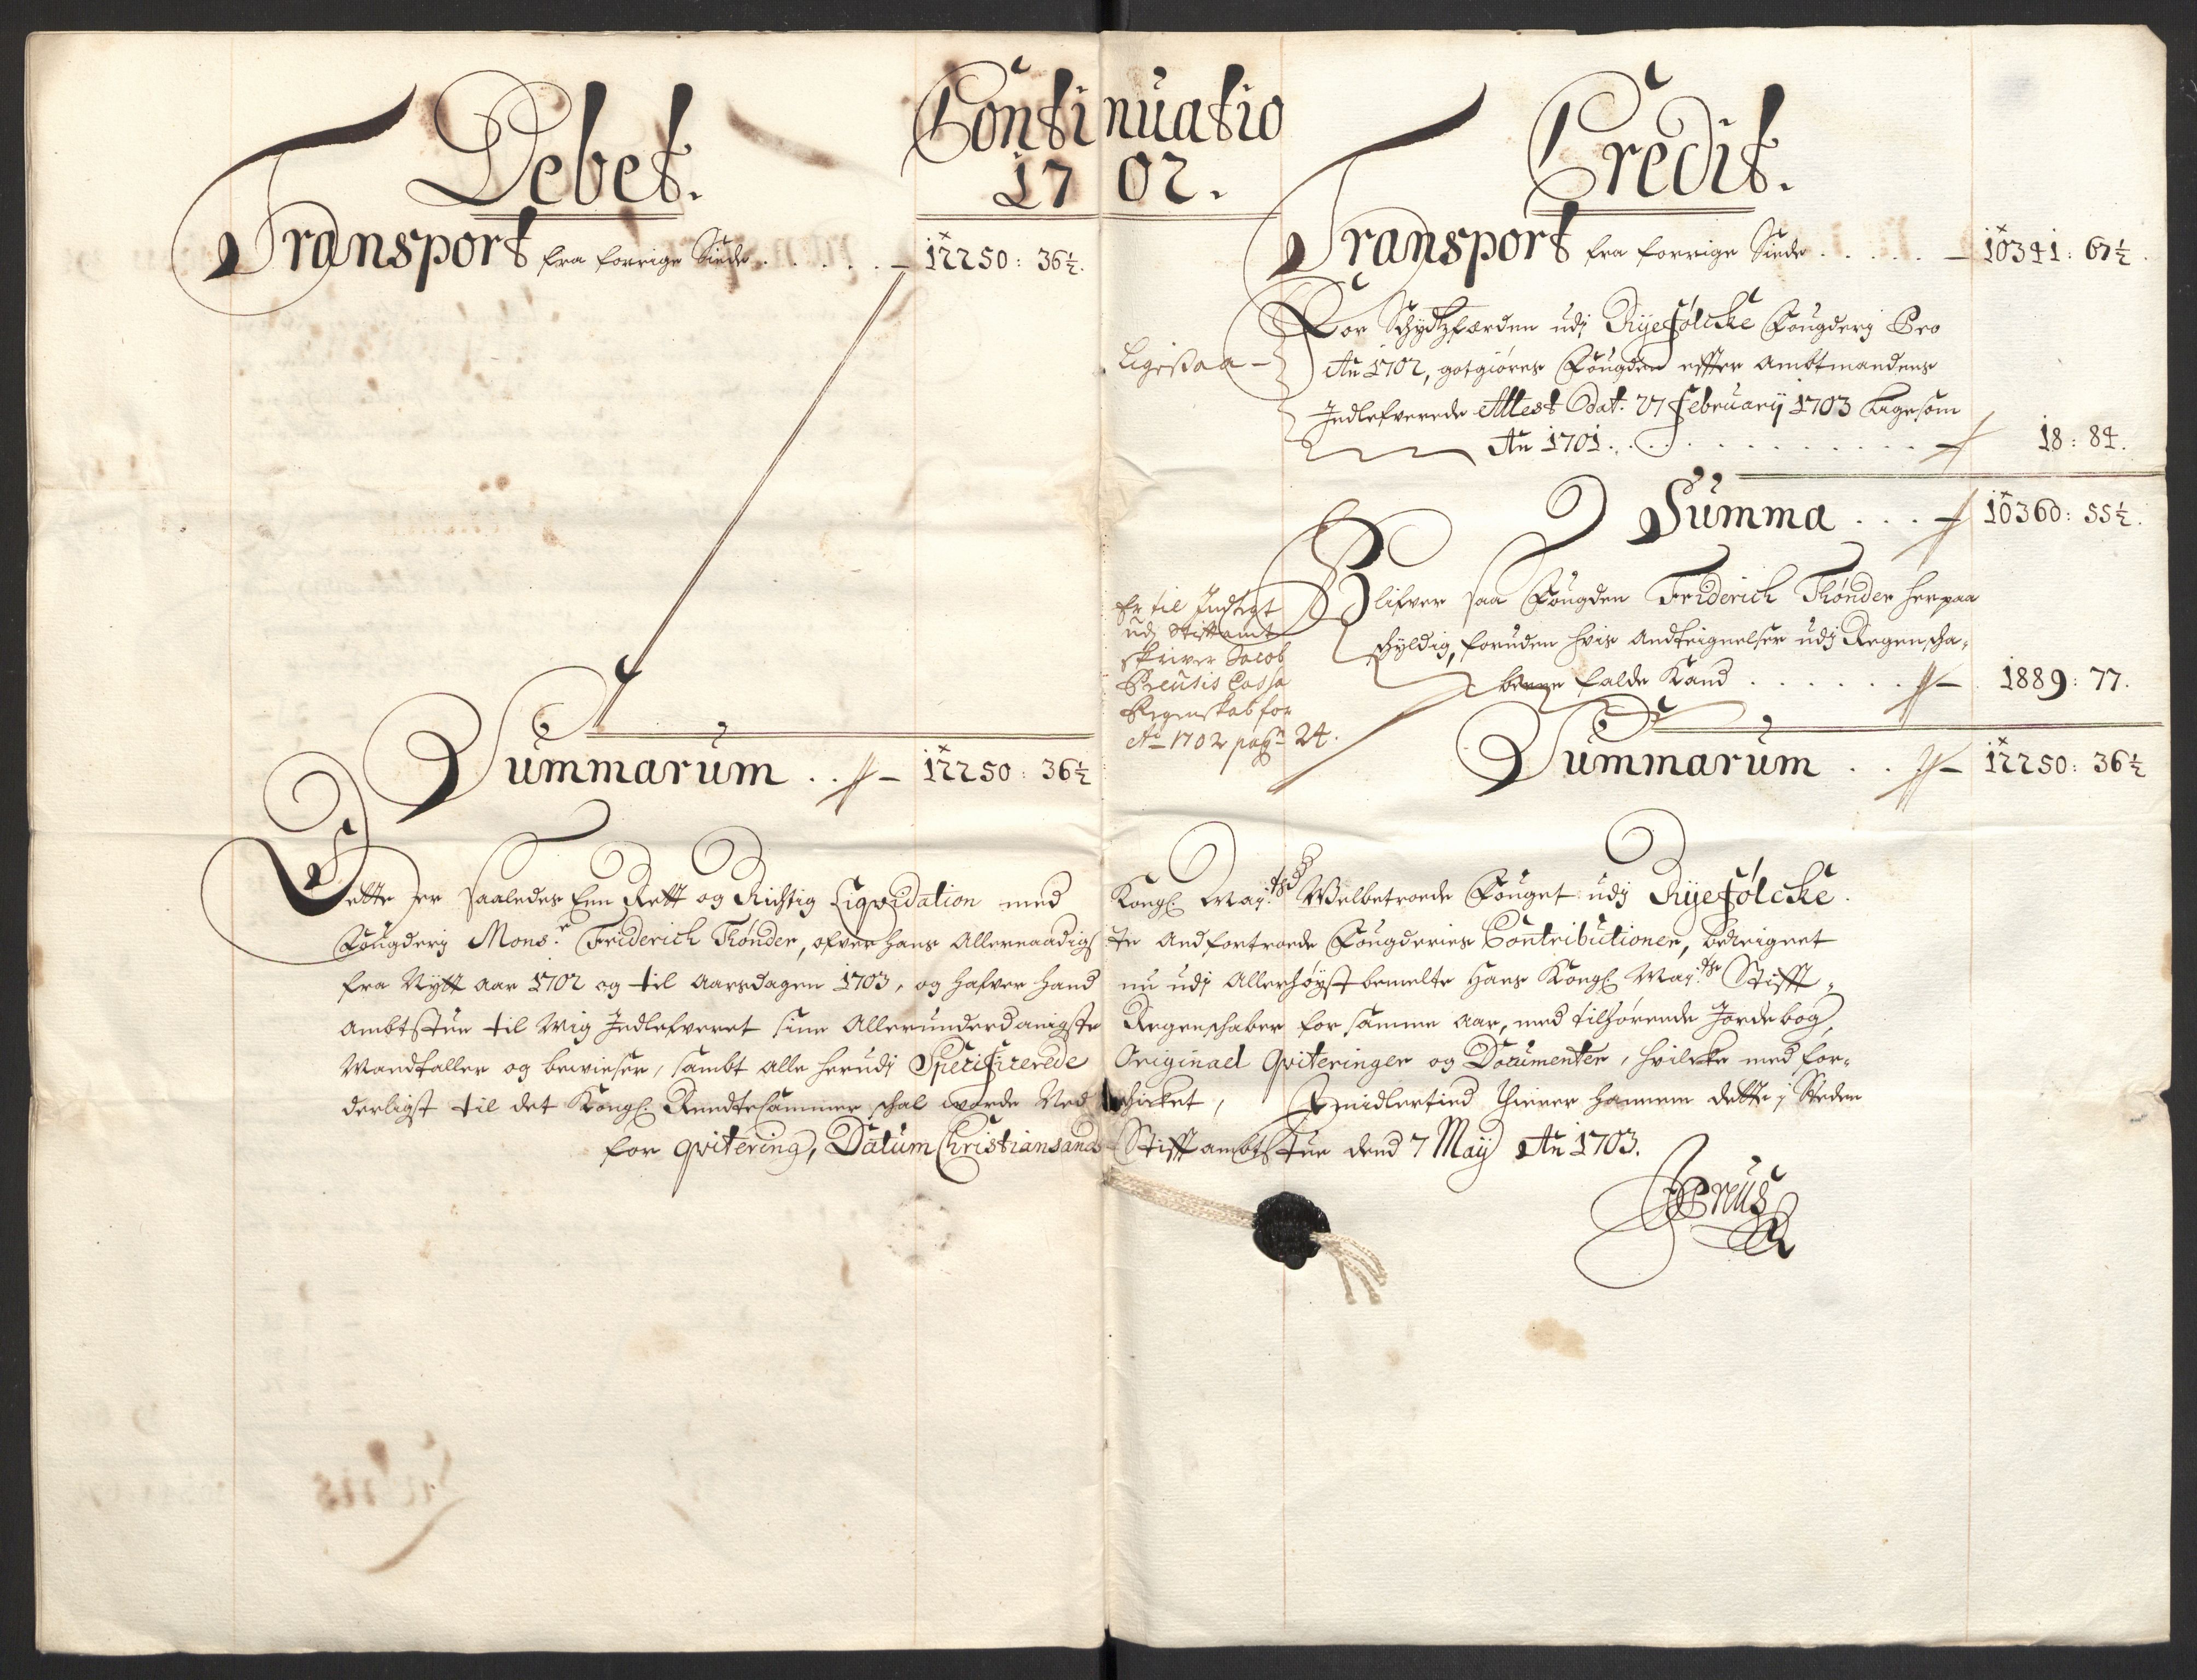 Continuatio
1702.
Debet.
Transport fra forrige Siede . . . . . 12250: 36½.
Summarum . . 12250: 36½
Credit.
Transport fra forrige Siede . . . . . 10341: 67½.
Ligesaa
For Schydtzfærden udj Ryefølcke Fougderj Pro
Ao 1702, gotgiøres Fougden effter Ambtmandens
Indlefverede Attest dat. 27 February 1703 ligesom
Ao 1701 . . . 18: 84.
Summa . . . 10360: 55½.
Er til Indtegt
udj Stiftamt
skriver Jacob
Preusis Cassa
Regenskab for
Ao 1702 pag. 24.
Blifver saa Fougden Friderich Thønder herpaa
schyldig, foruden hvis Andteignelser udj Regenscha-
berne falde Kand . . . . . . 1889: 77.
Summarum . . 12250: 36½
Dette er saaledes Een Rett og Richtig Liqvidation med Kongl. May.ts Welbetroede Fouget udj Ryefølcke.
Fougderj Mons.r Friderich Thønder, ofver hans Allernaadigste Andfortroede Fougderies Contributioner, beregnet
fra Nytt Aar 1702 og til Aarsdagen 1703, og hafver hand nu udj Allerhøyst bemelte Hans Kongl. May.ts Stifft-
Ambtstue til Mig Indlefveret sine Allerunderdanigste Regenschaber for samme Aar, med tilhørende Jordebog,
Mandtaller og bevieser, sambt alle herudj Specificerede Original Qviteringer og Documenter, hvilcke med for-
derligst til det Kongl. Rendtekammer schal worde Nedschicket, Emidlertied thiener hannem dette j Steden
for qvitering, Datum Christiansands Stifftambtstue dend 7 May Ao 1703.
JPreus